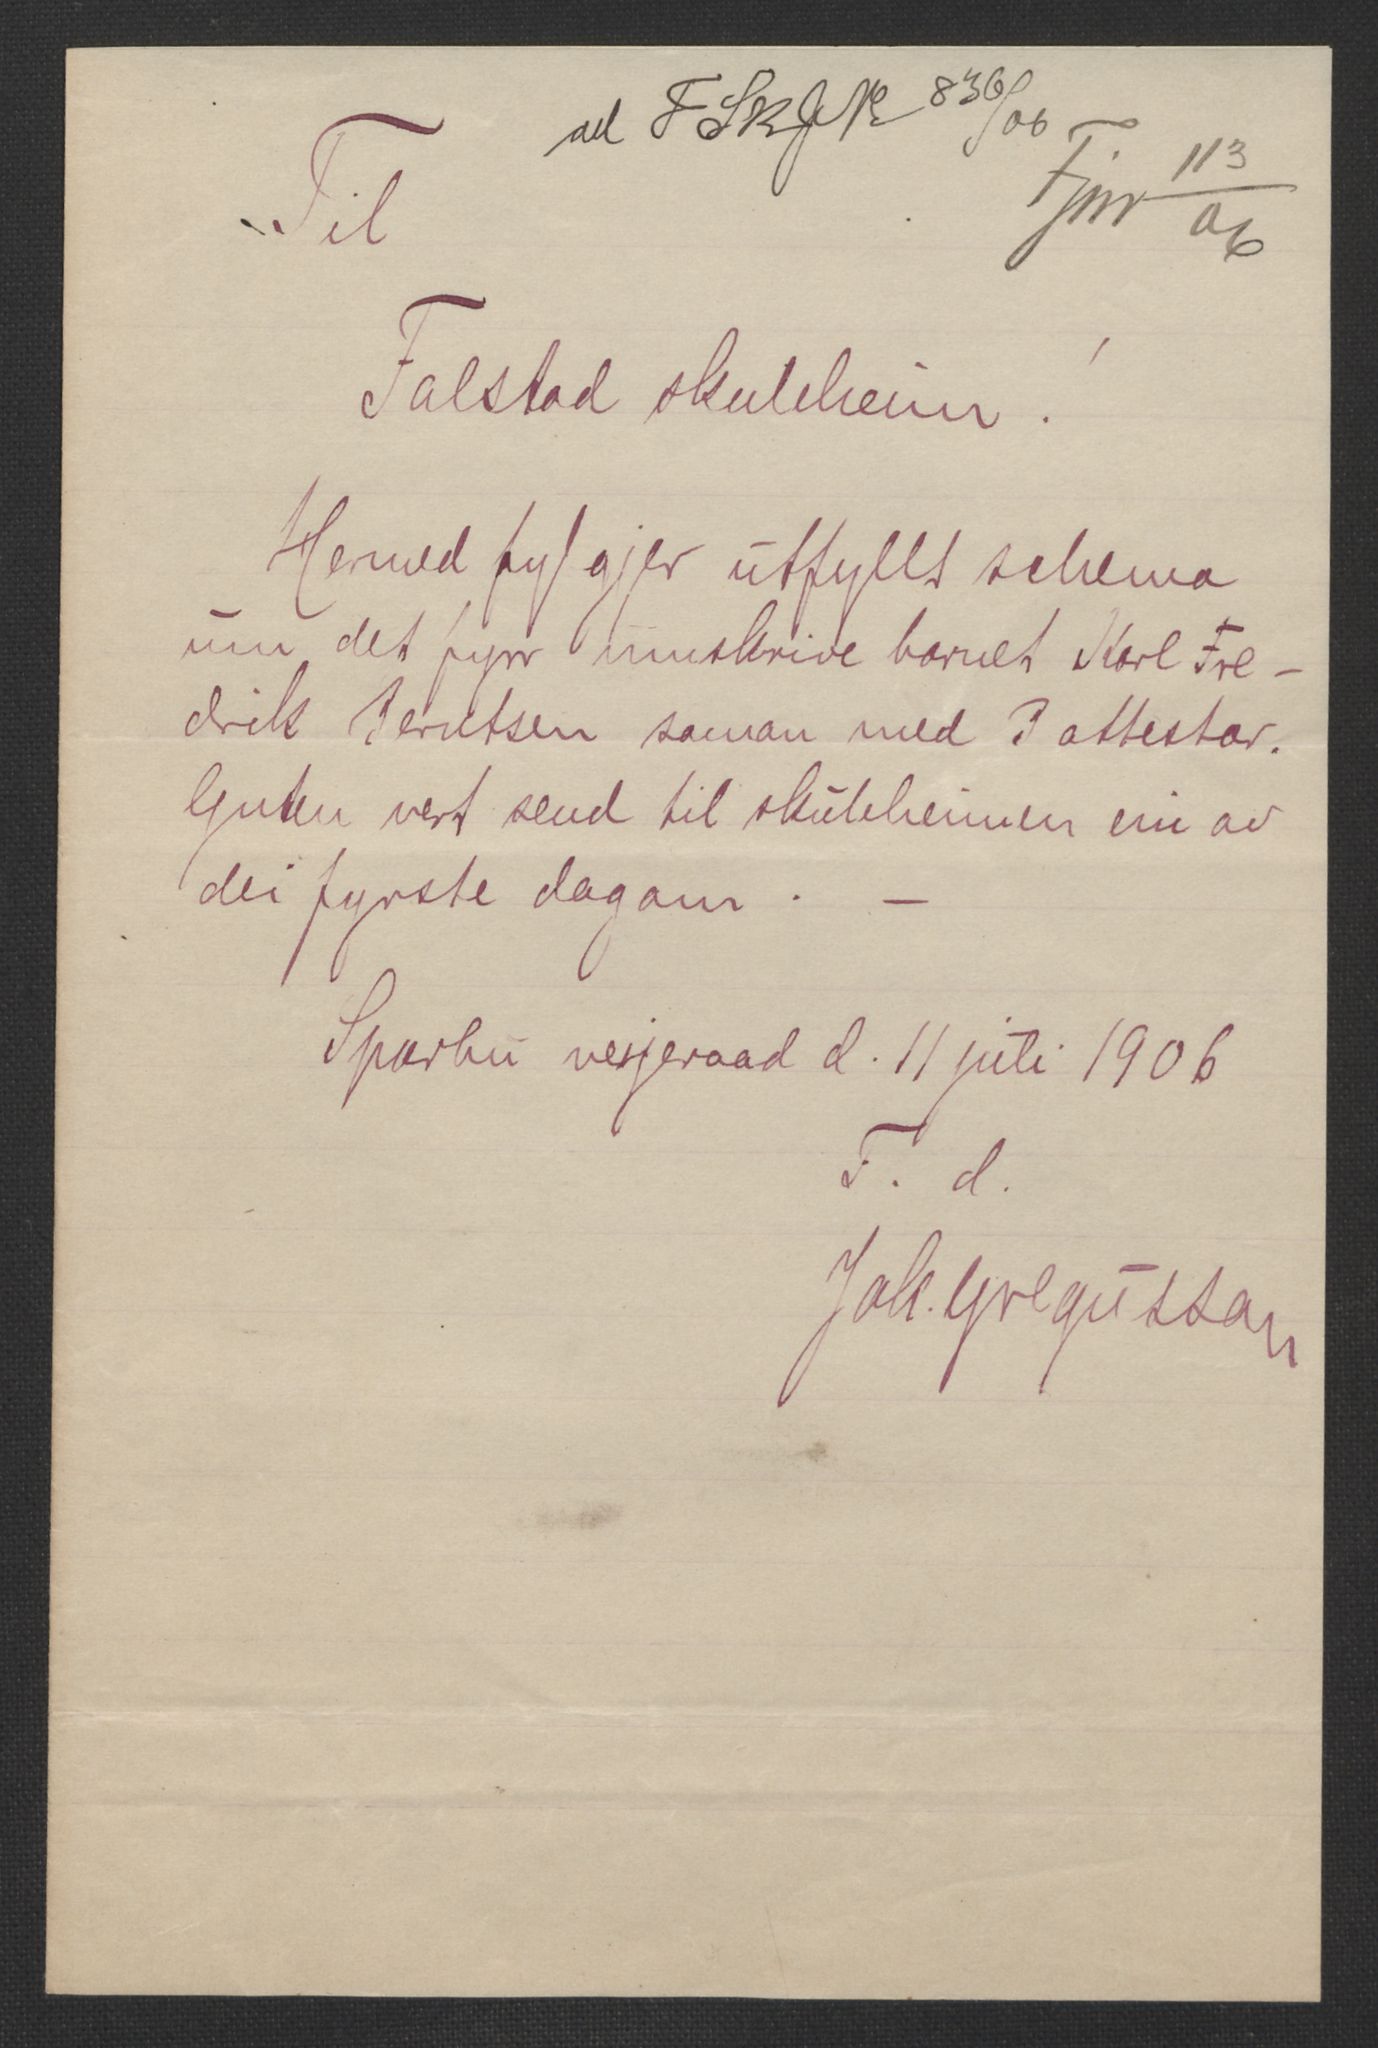 ad F Sk J N 836/06
Fjnr 113/06
Til
Falstad skuleheim!
Hermed fylgjer utfyllt schema
um det fyrr umskrive barnet Karl Fre-
drik Berntsen saman med 3 attestar.
Guten vert send til skuleheimen ein av
dei fyrste dagam. —
Sparbu verjeraad d. 11 juli 1906
F. d.
Jak. Gregussan